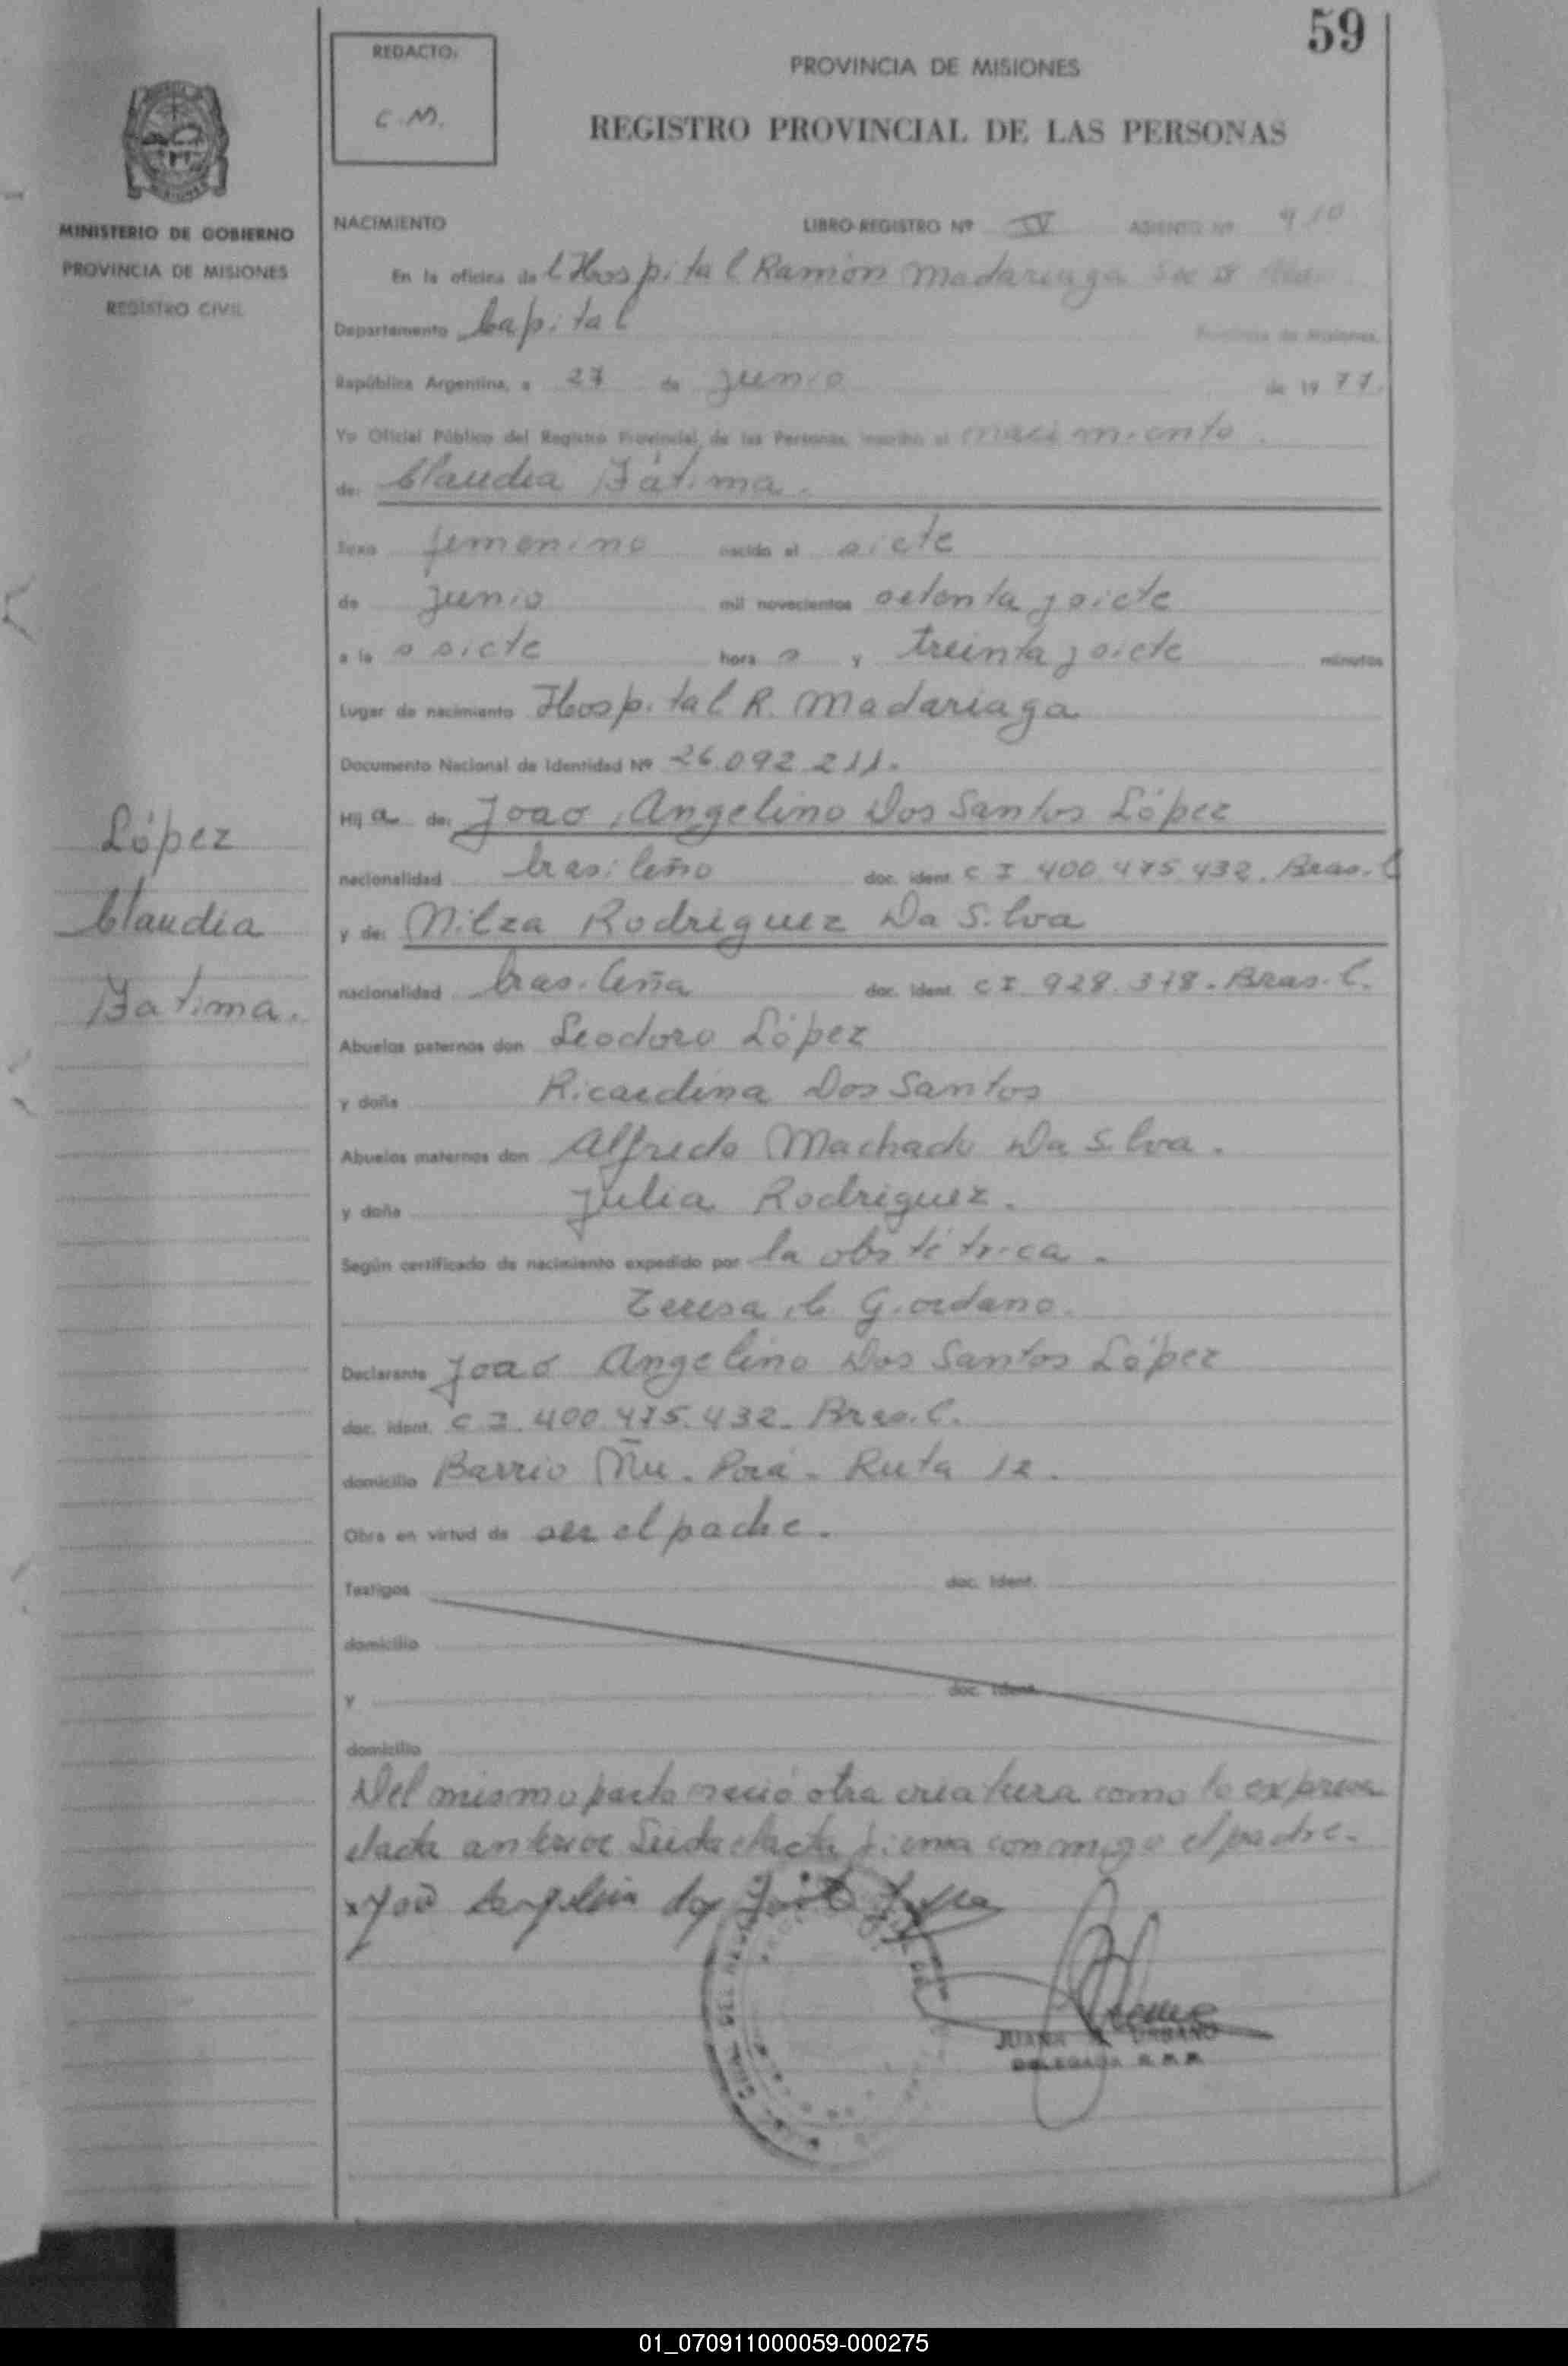 59
REDACTO:
C.M.
PROVINCIA DE MISIONES
REGISTRO PROVINCIAL DE LAS PERSONAS
MINISTERIO DE GOBIERNO
PROVINCIA DE MISIONES
REGISTRO CIVIL
NACIMIENTO LIBRO-REGISTRO Nº IV ASIENTO Nº 910
En la oficina del Hospital Ramón Madariaga
Departamento Capital Provincia de Misiones,
República Argentina, a 27 de Junio de 1977.
Yo Oficial Público del Registro Provincial de las Personas, inscribo el nacimiento.
de: Claudia Fátima.
Sexo femenino nacido el siete
de Junio mil novecientos setenta y siete
a las siete horas y treinta y siete minutos
Lugar de nacimiento Hospital R. Madariaga
Documento Nacional de Identidad Nº 26.092.211.
Hija de: Joao Angelino Dos Santos López
nacionalidad brasileño doc. ident. C I 400.475.432. Brasil
y de: Nilza Rodriguez Da Silva
nacionalidad brasileña doc. ident. C I 928.378. Brasil.
Abuelos paternos don Leodoro López
y doña Ricardina Dos Santos
Abuelos maternos don Alfredo Machado Da Silva.
y doña Julia Rodriguez.
Según certificado de nacimiento expedido por la obstétrica.
Teresa C. Giordano.
Declarante Joao Angelino Dos Santos López
doc. ident. C I. 400.475.432. Brasil.
domicilio Barrio Ñu. Porá. Ruta 12.
Obra en virtud de ser el padre.
Testigos doc. ident.
domicilio
y doc. ident.
domicilio
Del mismo parto nació otra criatura como lo expresa
el acta anterior Leida el acta firma conmigo el padre.
JUANA URBANO
DELEGADA R.P.P.
López
Claudia
Fatima.
01_070911000059-000275